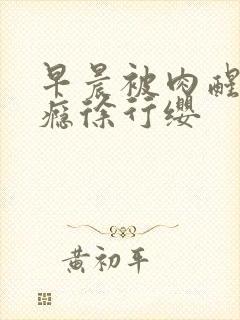 早晨被肉醒
瘾徐行缨
黄初平